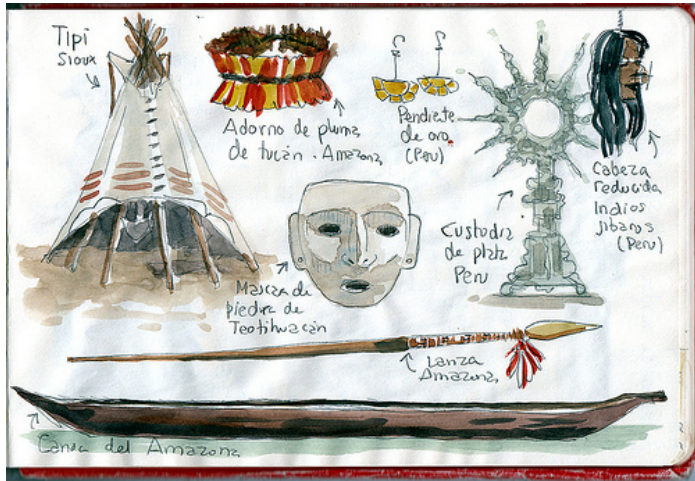 Tipi
Sioux
Adorno de pluma
de tucán. Amazona
Pendiente
de oro
(Peru)
Cabeza
reducida
Indios
jibaros
(Peru)
Custodia
de plata
Peru
Mascara de
piedra de
Teotihuacán
Lanza
Amazona
Canoa del Amazona